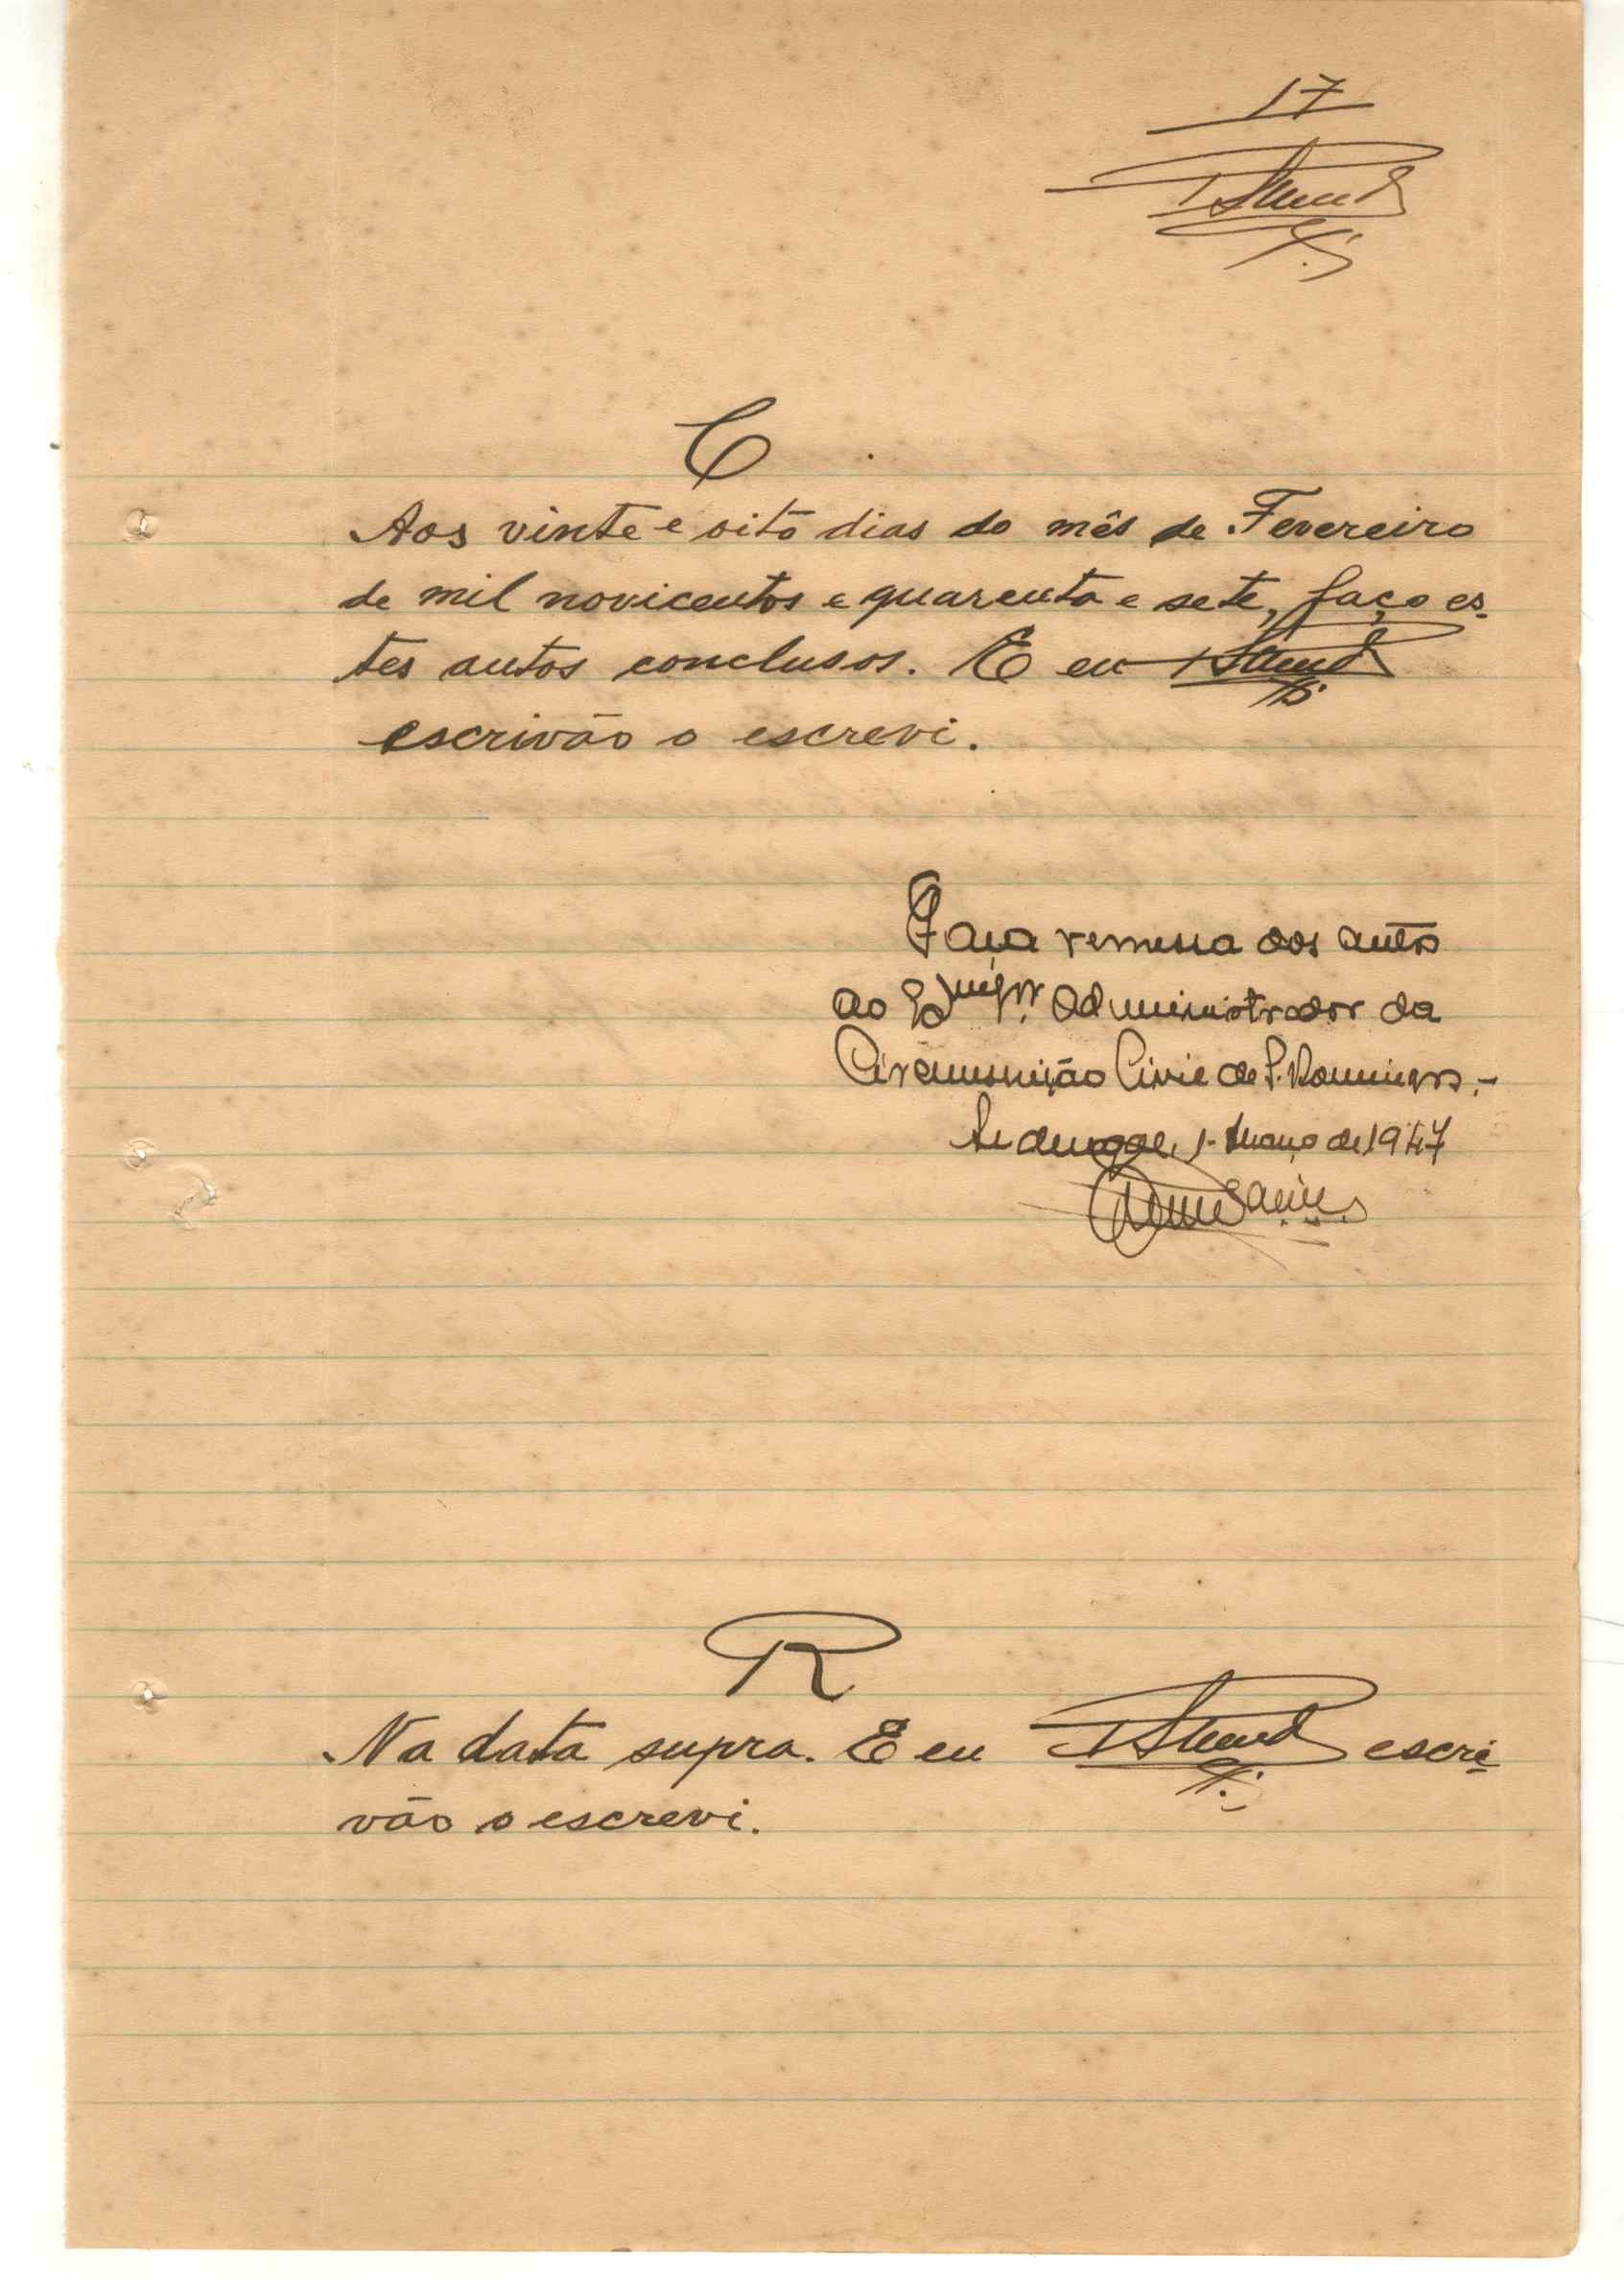 17
C
Aos vinte e oito dias do mês de Fevereiro
de mil novicentos e quarenta e sete, faço es-
tes autos conclusos. E eu
escrivão o escrevi.
Faça remessa dos autos
ao Exmº Sr. Administrador da
Circunscrição Civil de S. Domingos.-
1- Março de 1947
R
Na data supra. E eu escri-
vão o escrevi.